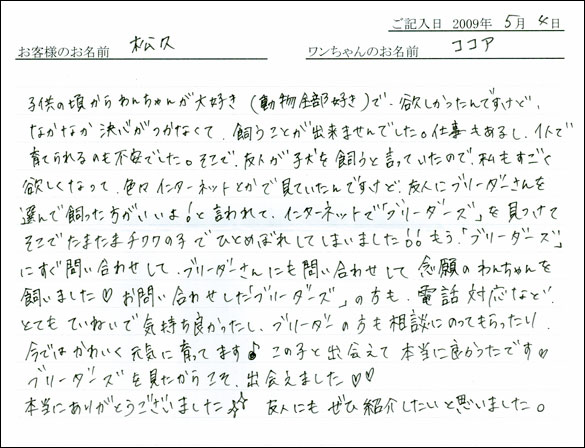 ご記入日 2009年 5月 4日
お客様のお名前 松久 ワンちゃんのお名前 ココア
子供の頃からわんちゃんが大好き(動物全部好き)で、欲しかったんですけど、
なかなか決心がつかなくて、飼うことが出来ませんでした。仕事もあるし、1人で
育てられるのも不安でした。そこで、友人が子犬を飼うと言っていたので、私もすごく
欲しくなって、色々インターネットとかで見ていたんですけど、友人にブリーダーさんを
選んで飼った方がいいよ!と言われて、インターネットで「ブリーダーズ」を見つけて
そこでたまたまチワワの子でひとめぼれしてしまいました!!もう、「ブリーダーズ」
にすぐ問い合わせして、ブリーダーさんにも問い合わせして念願のわんちゃんを
飼いました♡ お問い合わせした「ブリーダーズ」の方も、電話対応など、
とてもていねいで気持ち良かったし、ブリーダーの方も相談にのってもらったり、
今ではかわいく元気に育ってます♪ この子と出会えて本当に良かったです♡
ブリーダーズを見たからこそ、出会えました♡♡
本当にありがとうございました☆☆ 友人にもぜひ紹介したいと思いました。